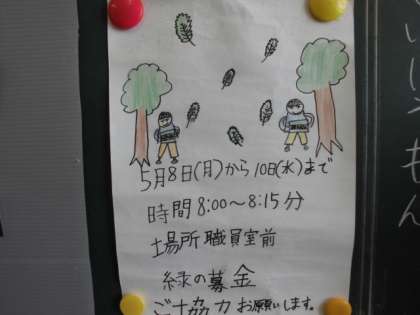 5月8日(月)から10日(水)まで
時間8:00〜8:15分
場所 職員室前
緑の募金
ご協力お願いします。